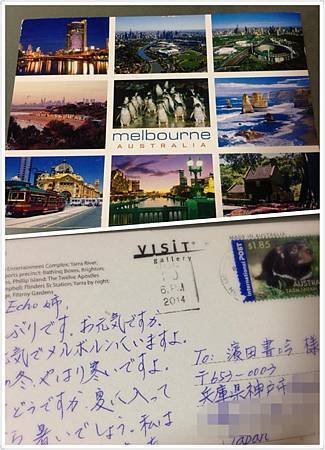 melbourne
AUSTRALIA
Entertainment Complex; Yarra River,
sports precinct; Bathing Boxes, Brighton;
Phillip Island; The Twelve Apostles
Flinders St Station; Yarra by night;
Fitzroy Gardens
visit
gallery
6 PM
2014
MADE IN AUSTRALIA
$1.85
INTERNATIONAL POST
AUSTRALIA
Echo 姉
ぶりです。お元気ですか。
気でメルボルンにいますよ。
の冬、やはり寒いですよ。
どうですか。夏に入って
暑いでしょう。私は
To:
〒653-0003
兵庫県神戸市
Japan